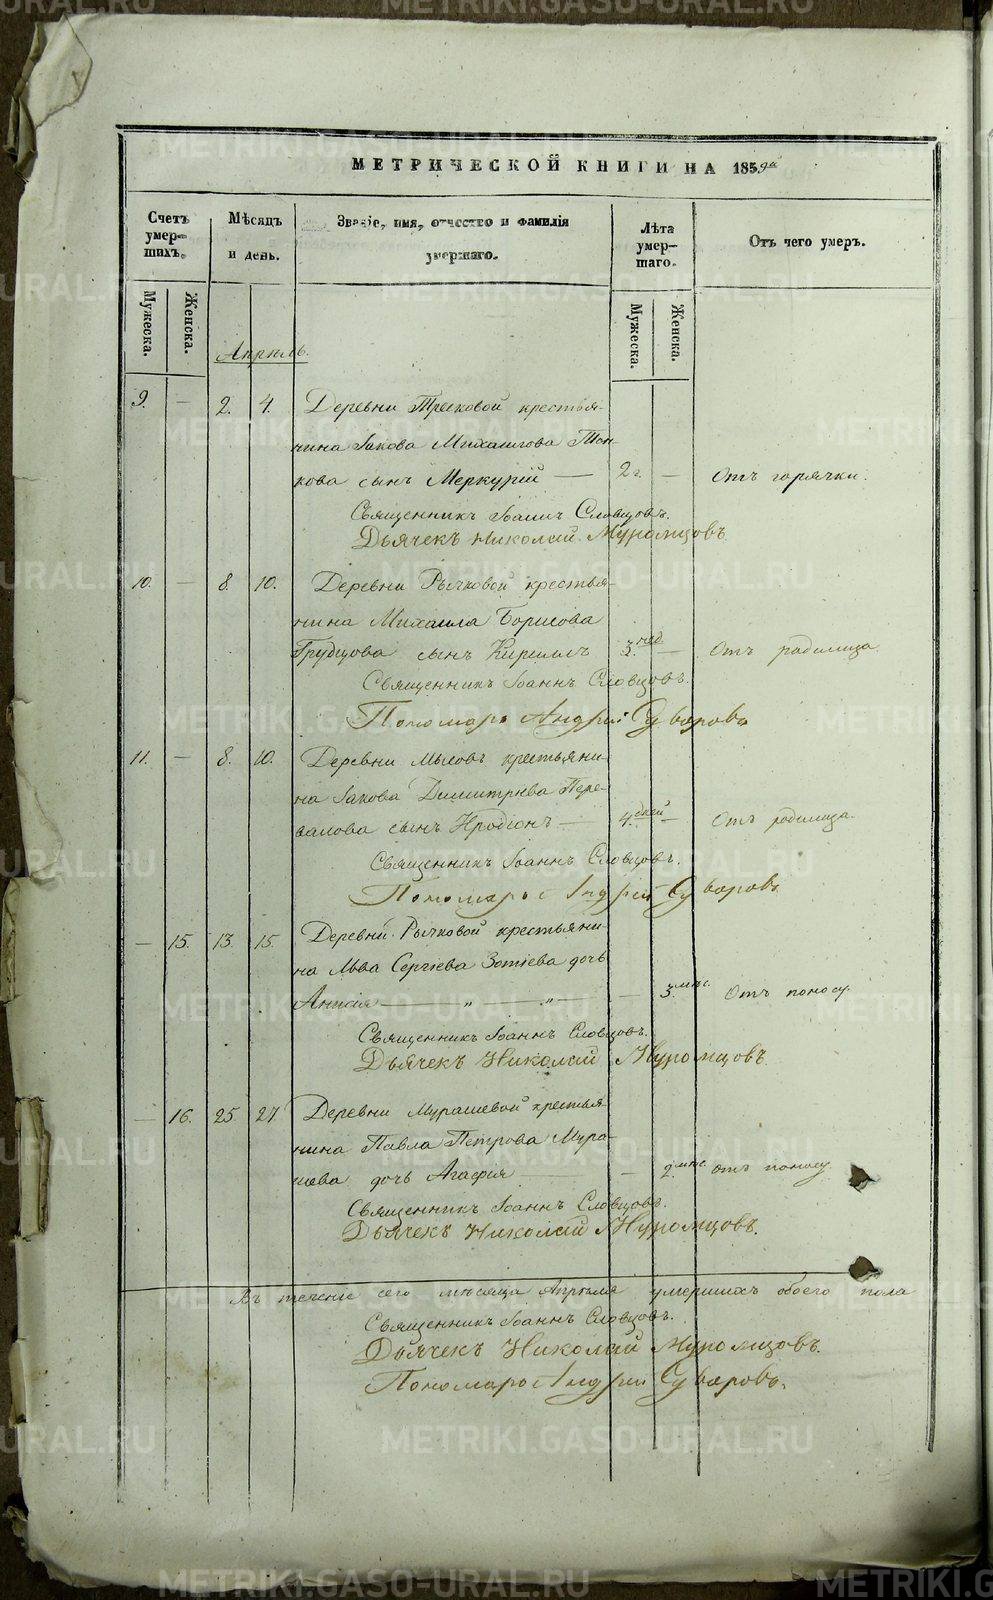 МЕТРИЧЕСКОЙ КНИГИ НА 1859 да
Счетъ умер-шихъ.
Мѣсяцъ и день.
Званіе, имя, отчество и фамилія умершаго.
Лѣта умер-шаго.
Отъ чего умеръ.
Мужеска.
Женска.
Мужеска.
Женска.
Апрѣль.
9. — 2. 4. Деревни Тресковой крестья-
нина Іакова Михаилова Тон-
кова сынъ Меркурій — 2 г. — Отъ горячки.
Священникъ Іоаннъ Словцовъ.
Дьячекъ Николай Муромцовъ
10. — 8. 10. Деревни Рычковой крестья-
нина Михаила Борисова
Грудцова сынъ Кириллъ 3. нед — Отъ родимца
Священникъ Іоаннъ Словцовъ.
Пономарь Андрей Суворовъ
11. — 8. 10. Деревни Мысовъ крестьяни-
на Іакова Димитріева Пере-
валова сынъ Иродіонъ — 4. дней — Отъ родимца.
Священникъ Іоаннъ Словцовъ.
Пономарь Андрей Суворовъ
— 15. 13. 15. Деревни Рычковой крестьяни-
на Льва Сергіева Зотіева дочь
Анисія — „ — „ — 3. мѣс. Отъ поносу.
Священникъ Іоаннъ Словцовъ.
Дьячекъ Николай Муромцовъ
— 16. 25. 27. Деревни Мурашевой крестья-
нина Павла Петрова Мура-
шева дочь Агафія — 2. мѣс. отъ поносу.
Священникъ Іоаннъ Словцовъ.
Дьячекъ Николай Муромцовъ.
Въ теченіе сего мѣсяца Апрѣля умершихъ обоего пола
Священникъ Іоаннъ Словцовъ.
Дьячекъ Николай Муромцовъ.
Пономарь Андрей Суворовъ.
METRIKI.GASO-URAL.RU